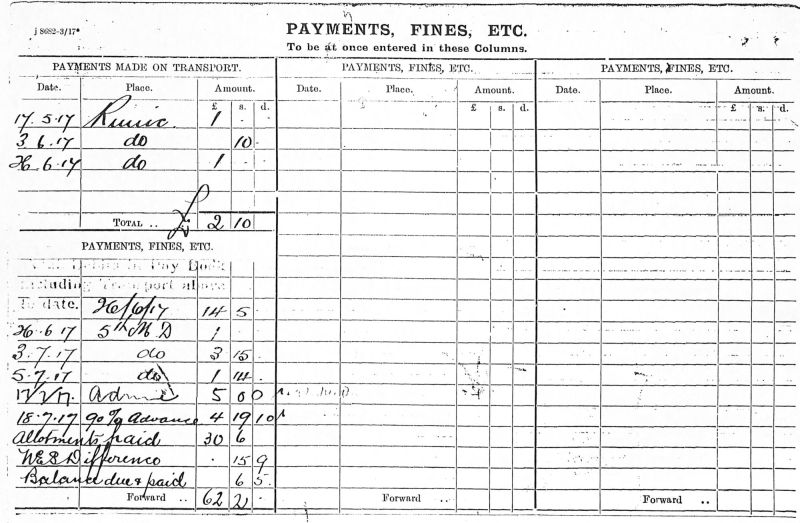 j 8682-3/17*
PAYMENTS, FINES, ETC.
To be at once entered in these Columns.
PAYMENTS MADE ON TRANSPORT. PAYMENTS, FINES, ETC. PAYMENTS, FINES, ETC.
Date. Place. Amount. Date. Place. Amount. Date. Place. Amount.
£ s. d. £ s. d. £ s. d.
17.5.17 Runic 1 . .
3.6.17 do 10 .
26.6.17 do 1 .
TOTAL .. £ 2 10
PAYMENTS, FINES, ETC.
Items in Pay Book
including Transport above
to date. 26/6/17 14 5
26.6.17 5th M D 1
3.7.17 do 3 15
5.7.17 do 1 14
5 0 0
18.7.17 90% Advance 4 19 10
Allotments paid 30 6
Difference . 15 9
Balance due & paid 6 5
Forward .. 62 2 . Forward .. Forward ..